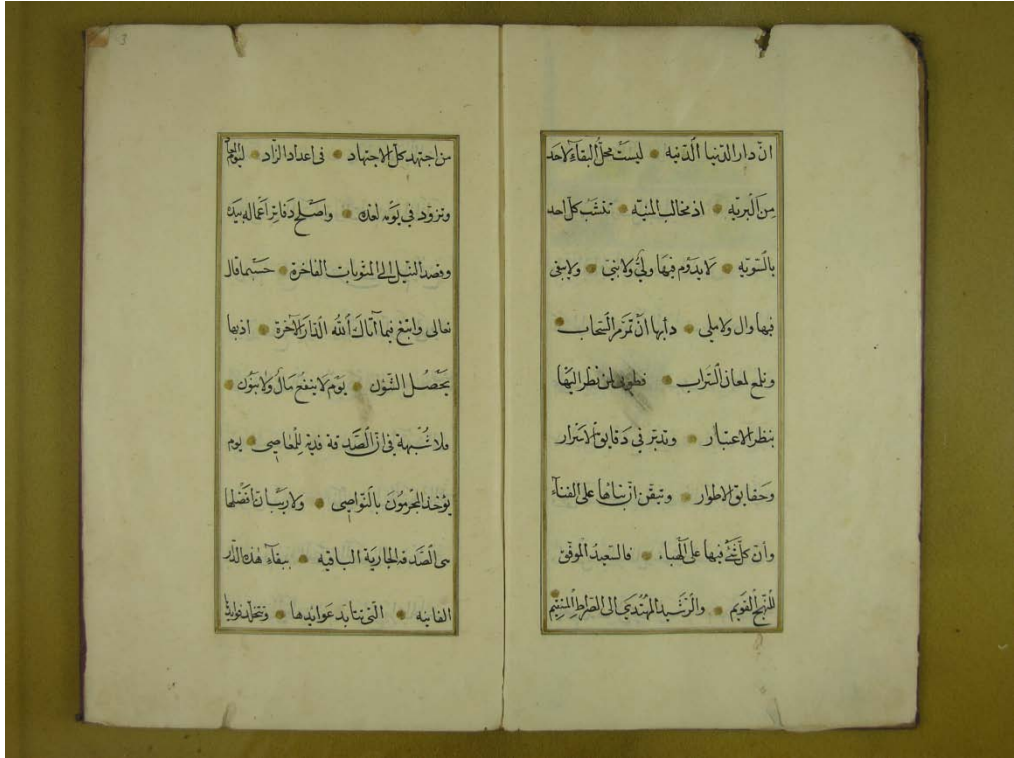 انّ دار الدّنيا الدّنيّه ليست محلّ البقاء لاحد
من البريّه اذ مخالب المنيّه تنشب كلّ احد
بالسّويّه لا يدوم فيها وليّ ولا نبيّ ولا يبقى
فيها وال ولا ملي دأبها أن تمرّ مرّ السّحاب
وتلمع لمعان السّراب فطوبى لمن نظر اليها
بنظر الاعتبار وتدبّر في دقايق الاسرار
وحقايق الاطوار وتيقّن انّ بناها على الفناء
وأنّ كلّ شئ فيها على الهباء فالسّعيد الموفّق
للنّهج القويم والرّشيد المهتدي الى الصّراط المستقيم
3
من اجتهد كلّ الاجتهاد في اعداد الزّاد ليوم المعاد
وتزوّد في يومه لغده وأصلح دفاتر أعماله بيده
وقصد النّيل الى المثوبات الفاخرة حسبما قال
تعالى وابتغ فيما آتاك الله الدّار الآخرة أذ بها
يحصل يوم لا ينفع مال ولا بنون
فلا شبهة في انّ الصّدقة فدية للعاصي يوم
يؤخذ المجرمون بالنّواصي ولا ريب أن أفضلها
هى الصّدقة الجارية الباقيه ببقاء هذه الدّار
الفانيه الّتي تتأبّد عوائدها وتتخلّد فوايدها